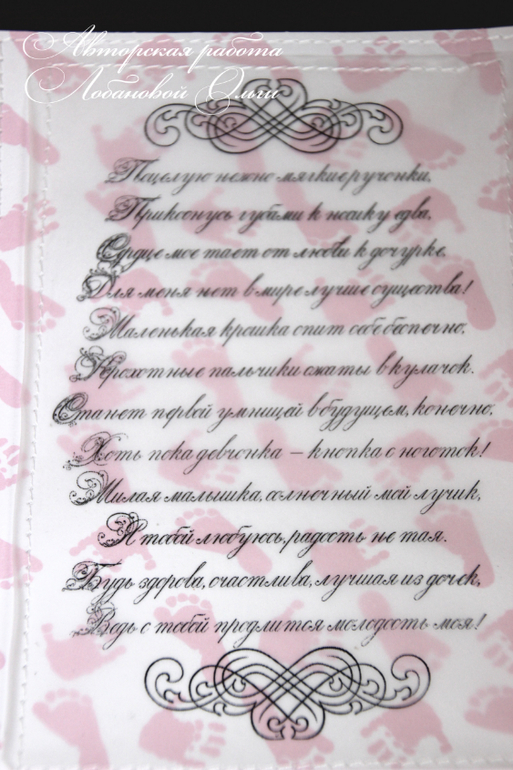 Авторская работа
Лобановой Ольги
Поцелую нежно мягкие ручонки,
Прикоснусь губами к носику едва.
Сердце мое тает от любви к дочурке,
Для меня нет в мире лучше существа!
Маленькая крошка спит себе беспечно,
Крохотные пальчики сжаты в кулачок.
Станет первой умницей в будущем, конечно,
Хоть пока девчонка – кнопка с ноготок!
Милая малышка, солнечный мой лучик,
Я тобой любуюсь, радость не тая.
Будь здорова, счастлива, лучшая из дочек,
Ведь с тобой продлится молодость моя!